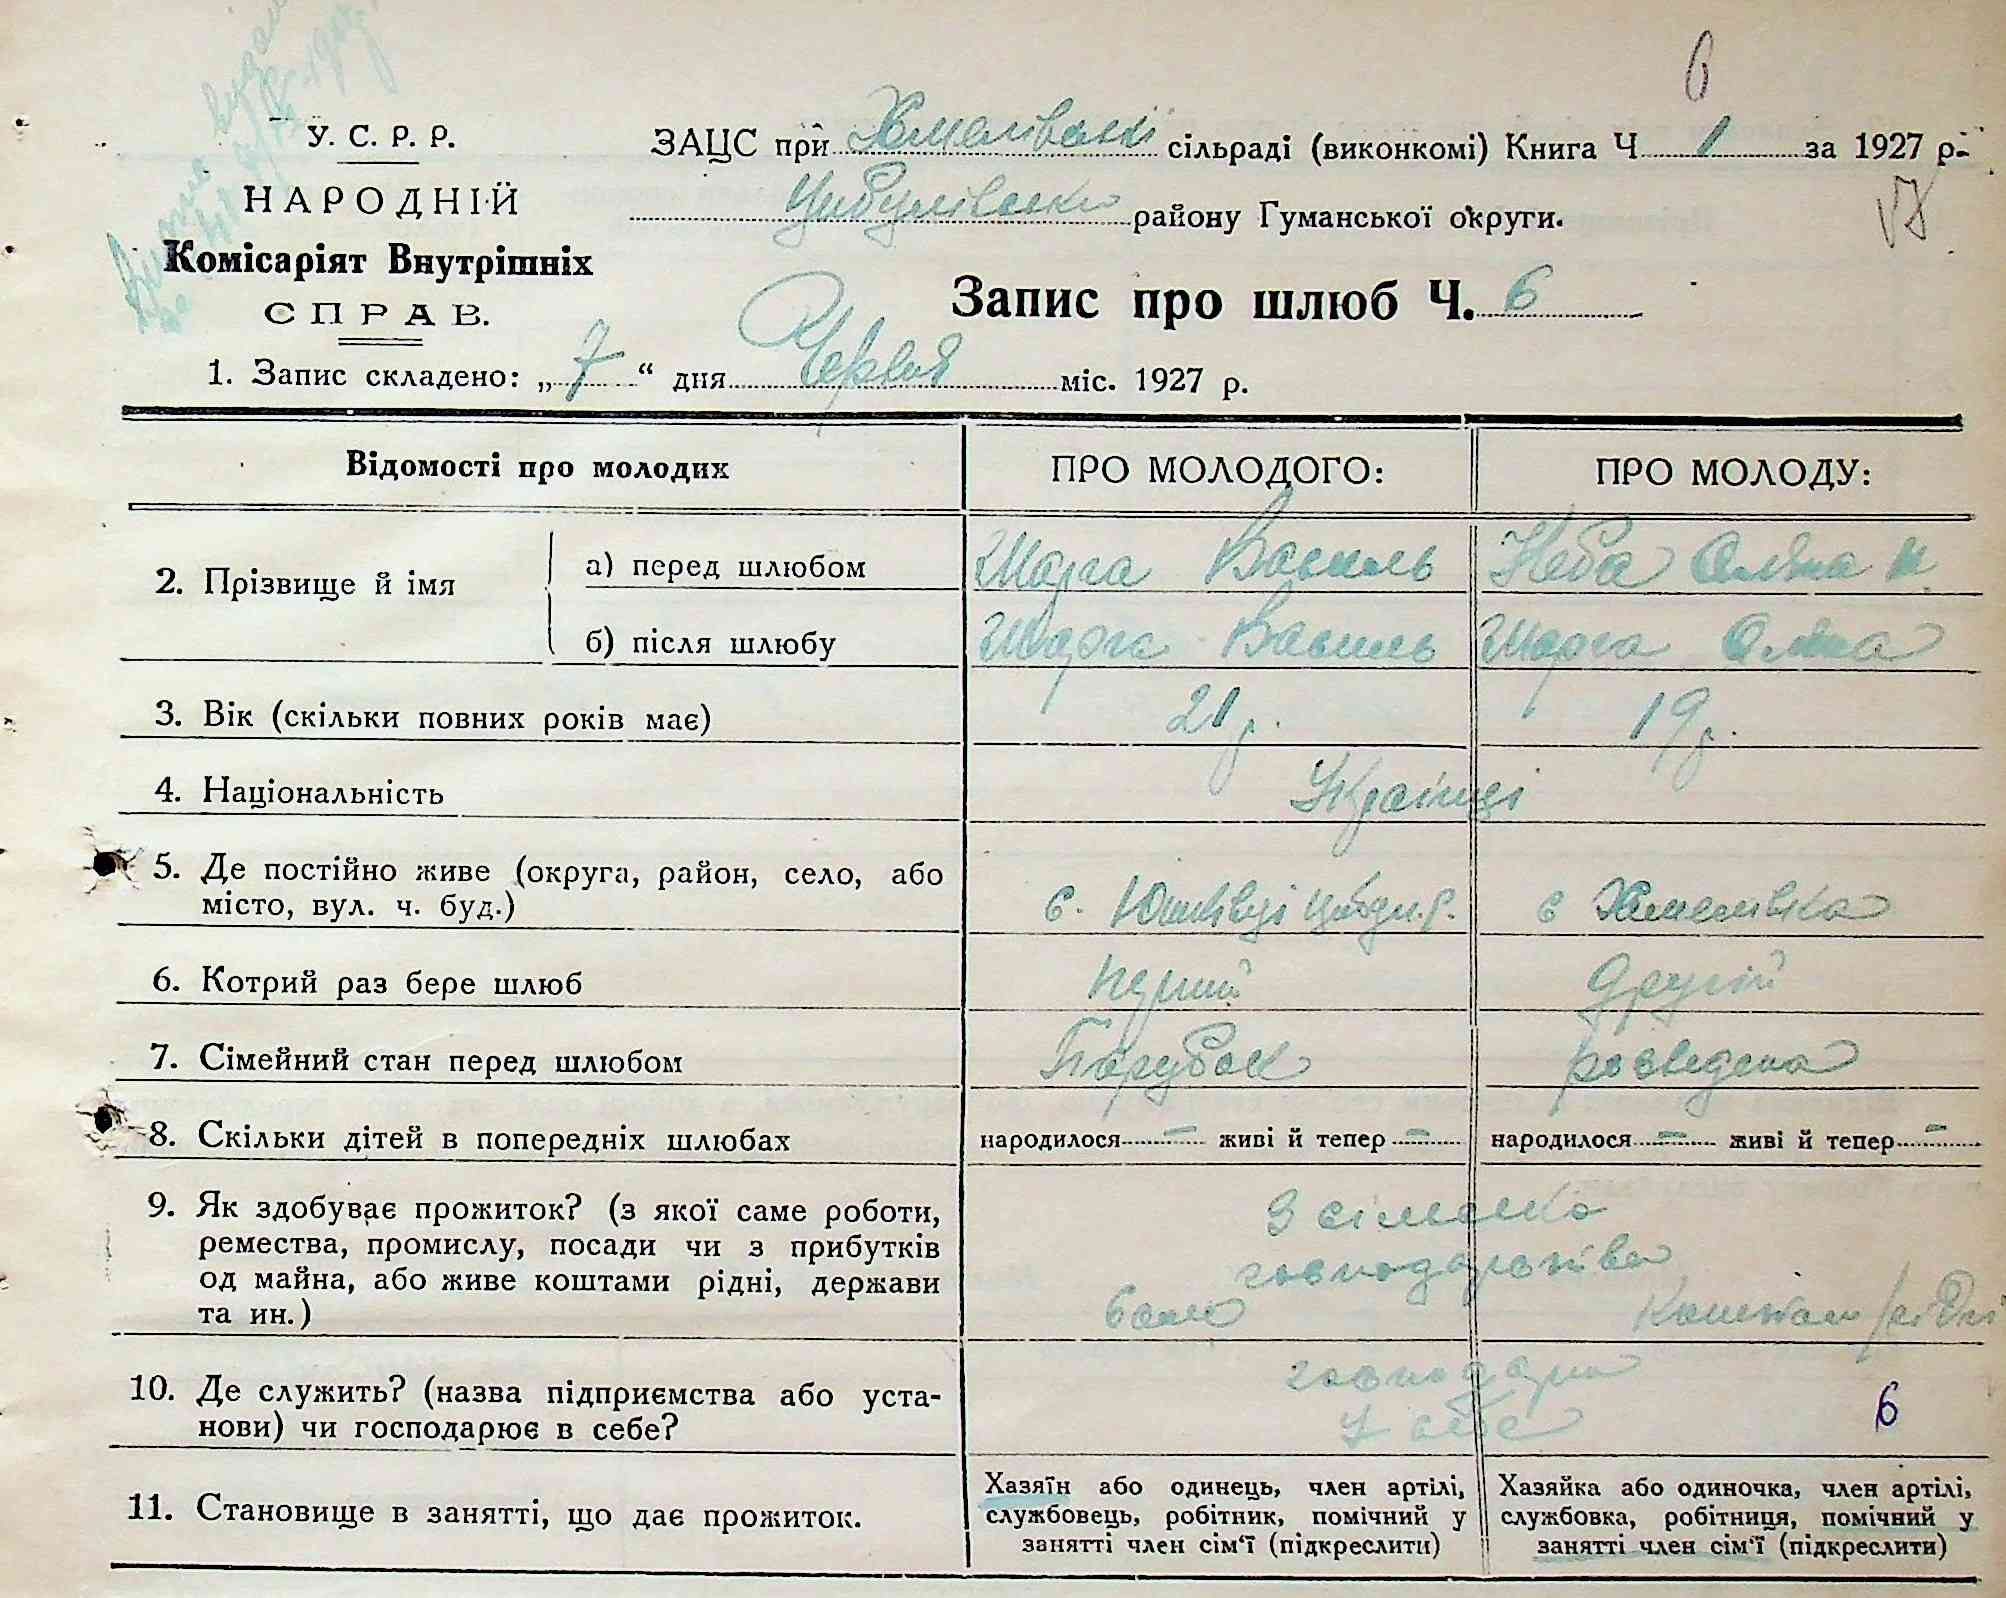 6
У. С. Р. Р.
ЗАЦС при Хмелівскі сільраді (виконкомі) Книга Ч 1 за 1927 р.
НАРОДНІЙ
Цибулівсько району Гуманської округи.
Комісаріят Внутрішніх
СПРАВ.
Запис про шлюб Ч. 6
1. Запис складено: „7“ дня Червня міс. 1927 р.
Відомості про молодих
ПРО МОЛОДОГО:
ПРО МОЛОДУ:
2. Прізвище й імя
а) перед шлюбом
Шарга Василь
Неба Оляна
б) після шлюбу
Шарга Василь
Шарга Оляна
3. Вік (скільки повних років має)
21 р.
19 р.
4. Національність
Українці
5. Де постійно живе (округа, район, село, або
місто, вул. ч. буд.)
с. Юшківці Цибул. р.
с Хмелівка
6. Котрий раз бере шлюб
перший
другий
7. Сімейний стан перед шлюбом
Парубок
розведена
8. Скільки дітей в попередніх шлюбах
народилося — живі й тепер —
народилося — живі й тепер —
9. Як здобуває прожиток? (з якої саме роботи,
ремества, промислу, посади чи з прибутків
од майна, або живе коштами рідні, держави
та ин.)
З сілмско
господарства
сам
Коштом рідні
10. Де служить? (назва підприємства або уста-
нови) чи господарює в себе?
господарю
у себе
6
11. Становище в занятті, що дає прожиток.
Хазяїн або одинець, член артілі,
службовець, робітник, помічний у
занятті член сім‘ї (підкреслити)
Хазяйка або одиночка, член артілі,
службовка, робітниця, помічний у
занятті член сім‘ї (підкреслити)